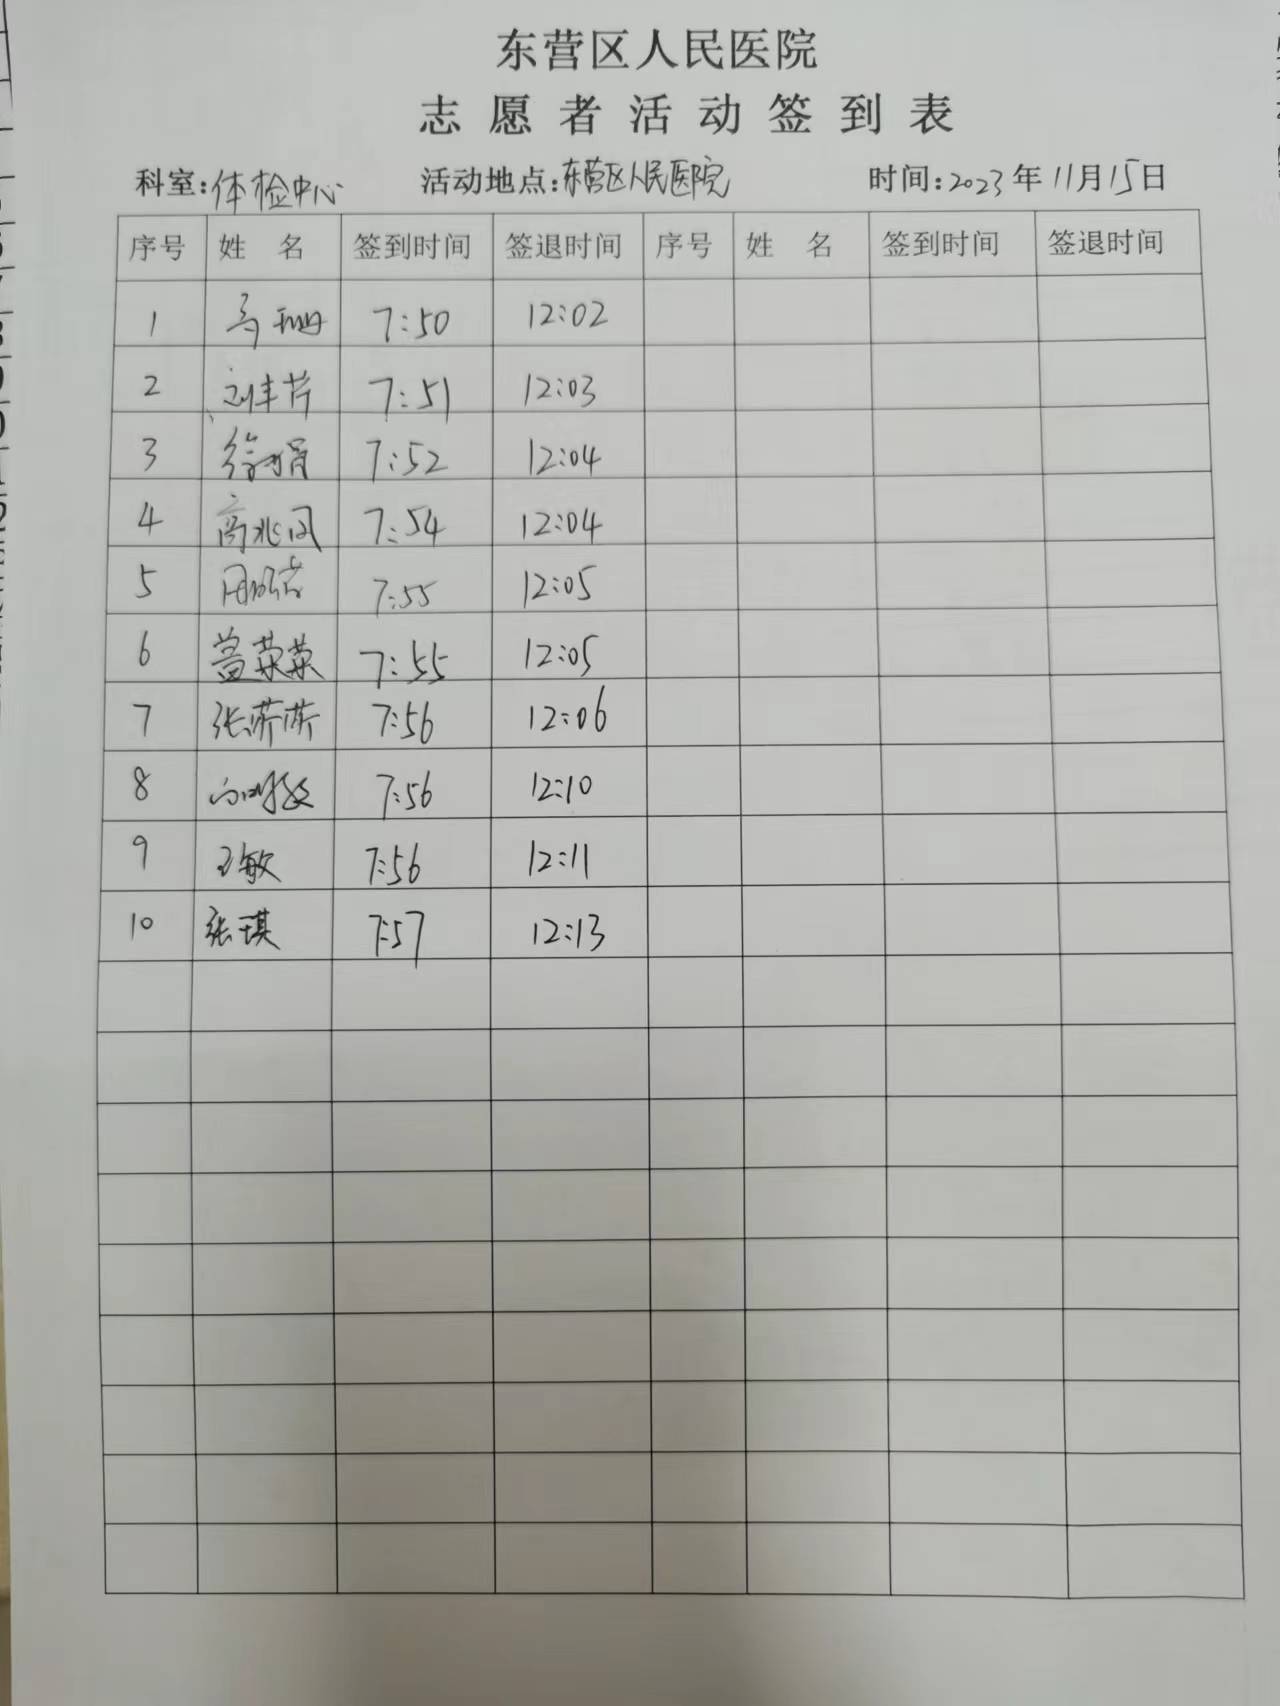 东营区人民医院
志愿者活动签到表
科室:体检中心 活动地点:东营区人民医院 时间:2023年11月15日
序号 姓名 签到时间 签退时间 序号 姓名 签到时间 签退时间
1 马珊 7:50 12:02
2 7:51 12:03
3 徐娟 7:52 12:04
4 高兆凤 7:54 12:04
5 7:55 12:05
6 菜菜 7:55 12:05
7 张荞荞 7:56 12:06
8 7:56 12:10
9 王敏 7:56 12:11
10 张琪 7:57 12:13